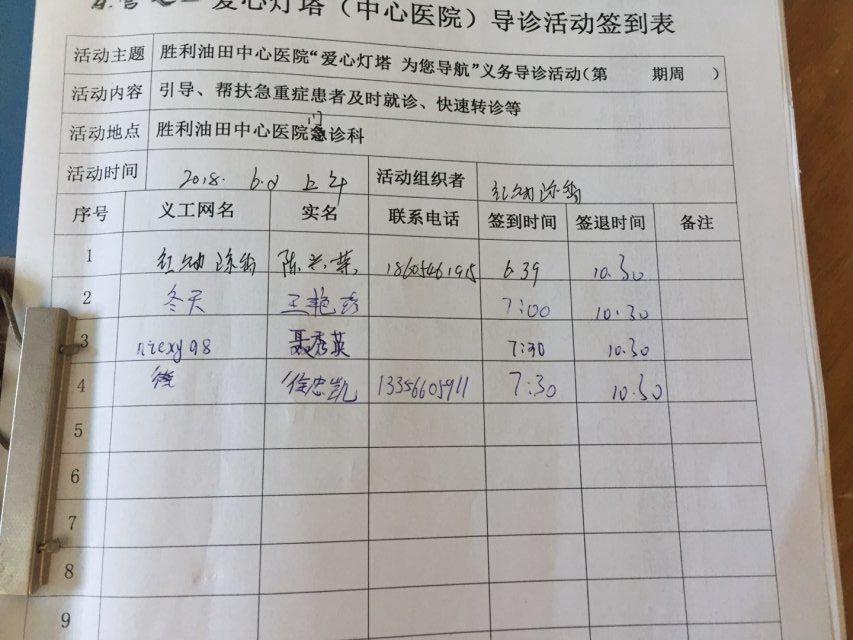 爱心灯塔（中心医院）导诊活动签到表
活动主题 胜利油田中心医院“爱心灯塔 为您导航”义务导诊活动（第 期周 ）
活动内容 引导、帮扶急重症患者及时就诊、快速转诊等
活动地点 胜利油田中心医院门诊科
活动时间 2018. 上午 活动组织者
序号 义工网名 实名 联系电话 签到时间 签退时间 备注
1 陈兰荣 18605461915 6.39 10.30
2 冬天 王艳彦 7:00 10.30
3 niexy98 聂秀英 7:30 10.30
4 徐忠凯 13356605911 7:30 10.30
5
6
7
8
9